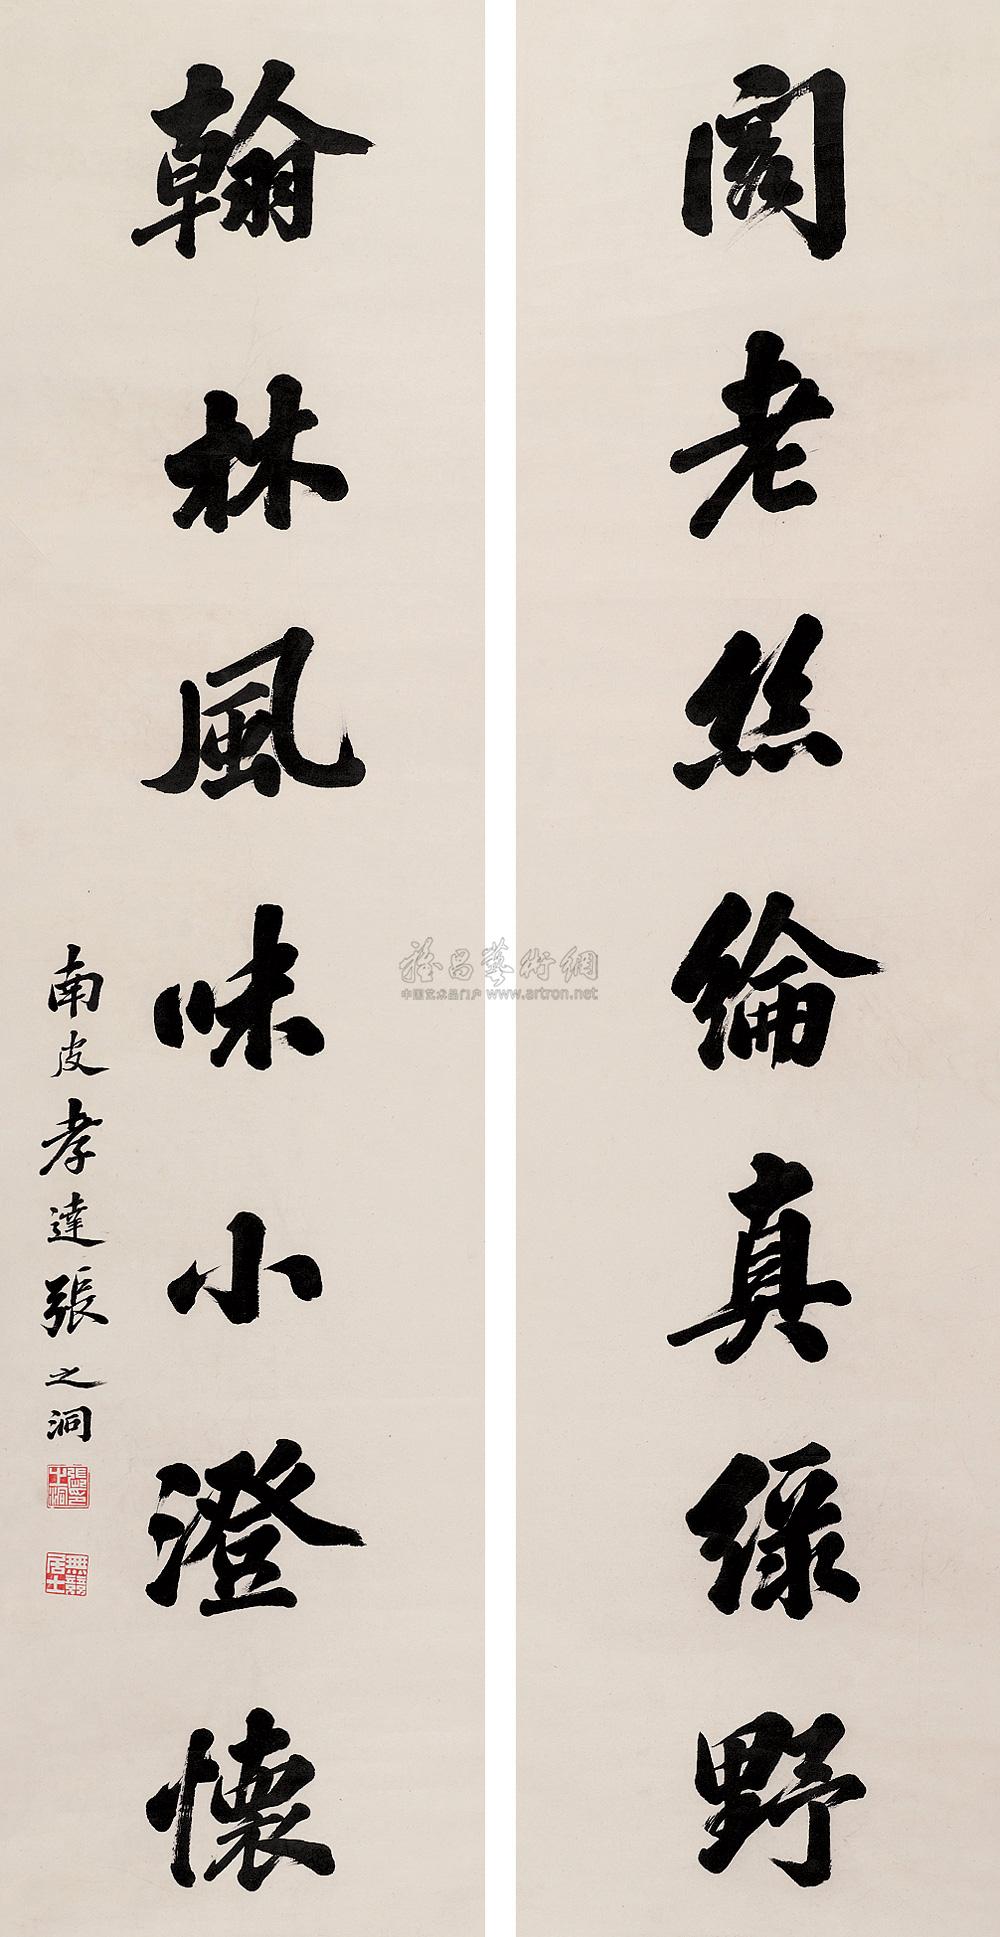 閣老絲綸真綠野
翰林風味小澄懷
南皮孝達張之洞
無競居士
雅昌藝術網
中国艺术品门户 www.artron.net